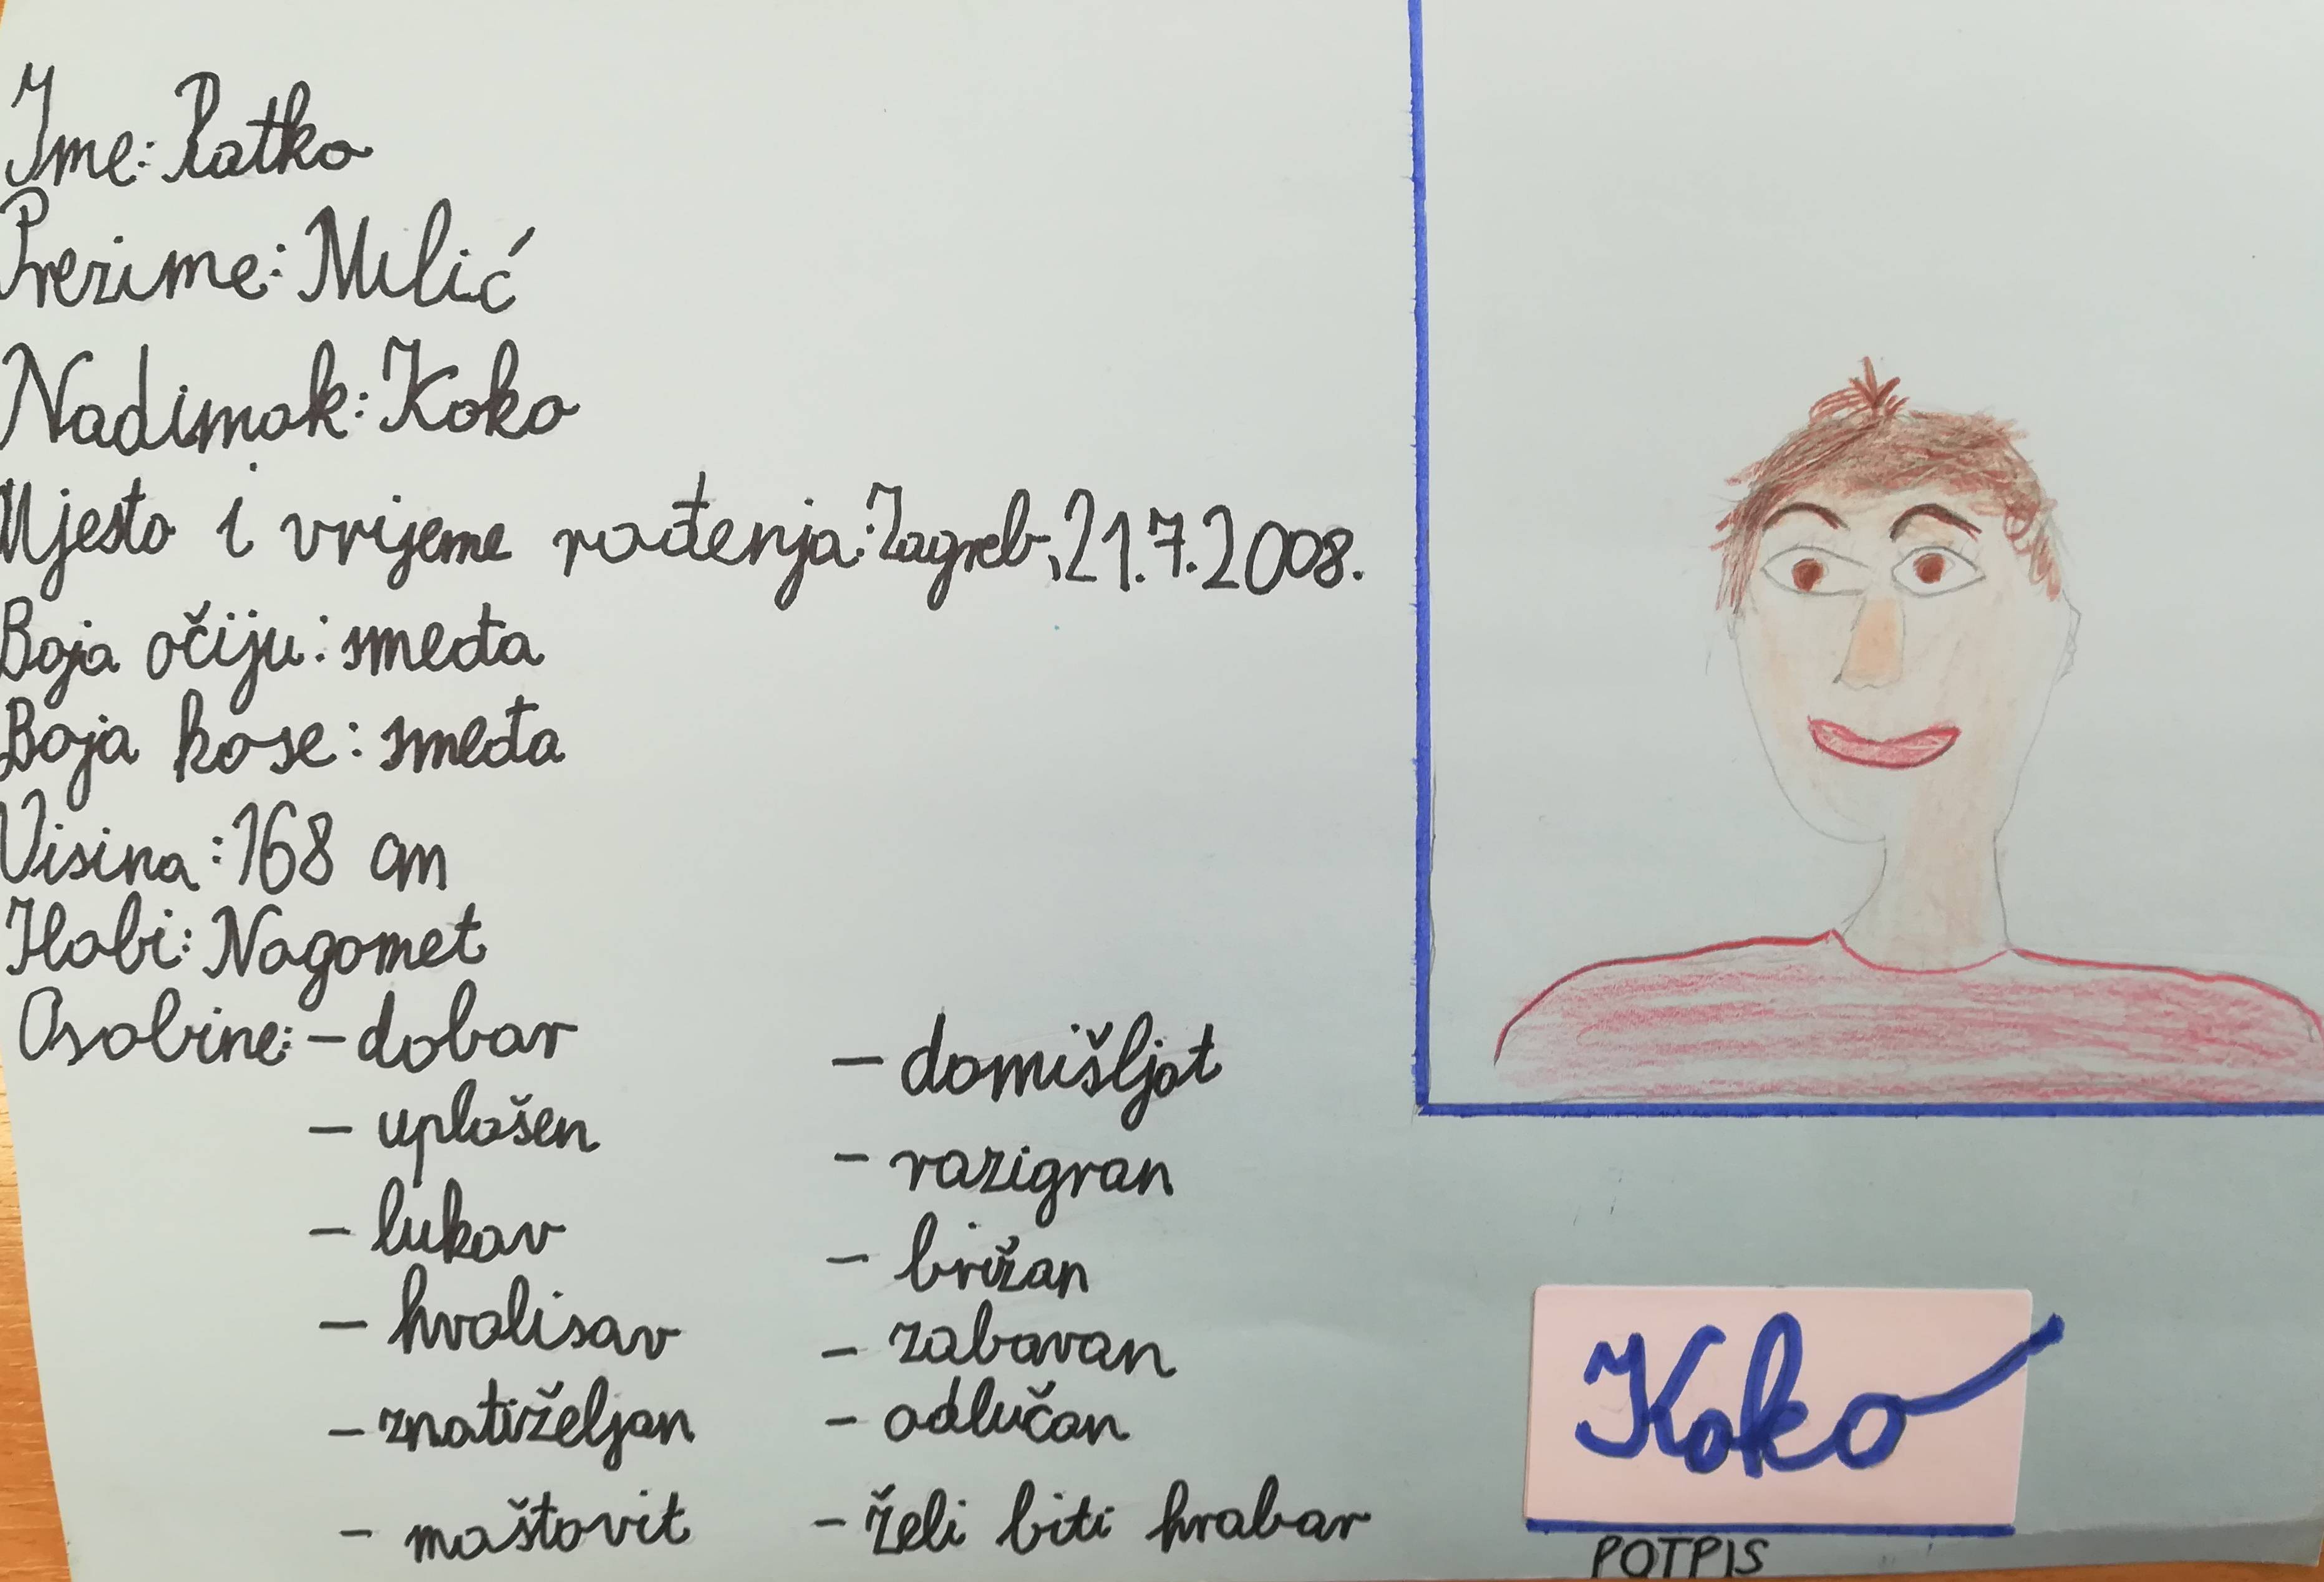 Ime: Ratko
Prezime: Milić
Nadimak: Koko
Mjesto i vrijeme rođenja: Zagreb, 21.7.2008.
Boja očiju: smeđa
Boja kose: smeđa
Visina: 168 cm
Hobi: Nogomet
Osobine: - dobar
- uplašen
- lukav
- hvalisav
- znatiželjan
- maštovit
- domišljat
- razigran
- brižan
- zabavan
- odlučan
- želi biti hrabar
Koko
POTPIS